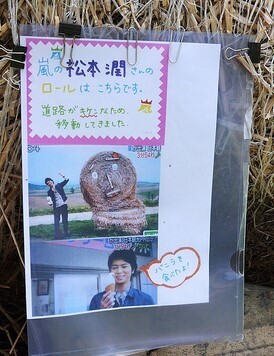 嵐
嵐の松本潤さんの
ロールはこちらです。
道路がキケンなため、
移動してきました。
嵐
バニラを
食べたよ!